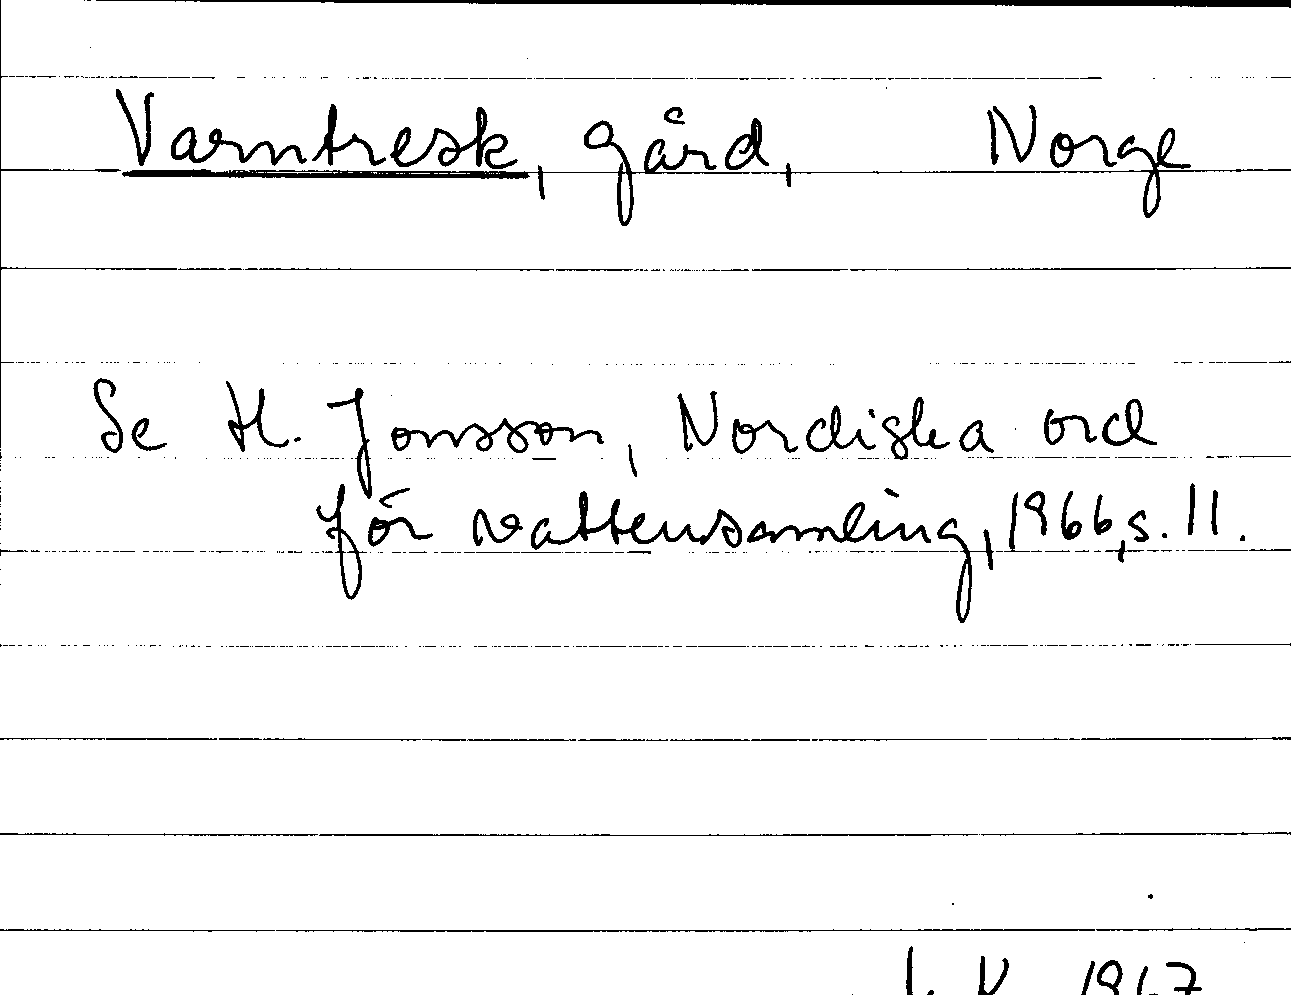 Varntresk, gård, Norge
Se H. Jonsson, Nordiska ord
för vattensamling, 1966, s. 11.
1967